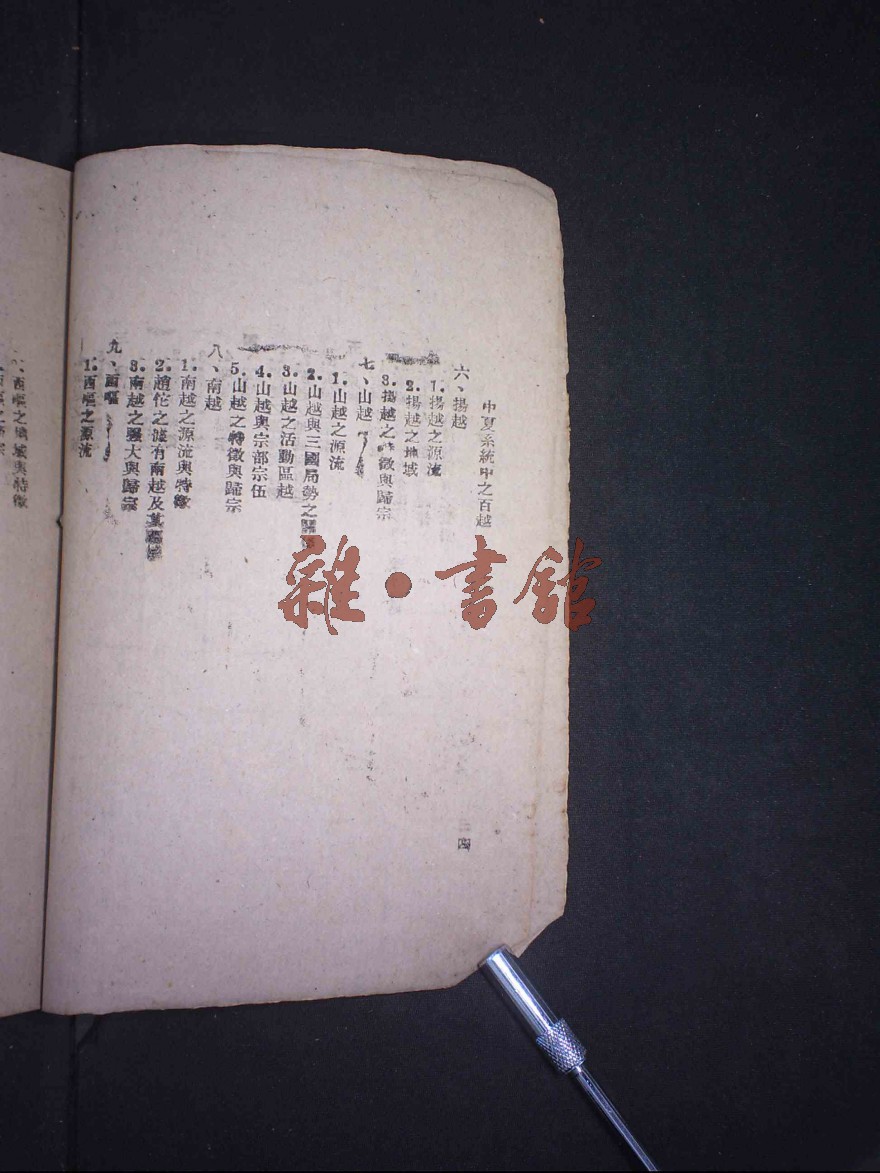 中夏系統中之百越
六、揚越
1. 揚越之源流
2. 揚越之地域
3. 揚越之特徵與歸宗
七、山越
1. 山越之源流
2. 山越與三國局勢之
3. 山越之活動區越
4. 山越與宗部宗伍
5. 山越之特徵與歸宗
八、南越
1. 南越之源流與特徵
2. 趙佗之據有南越及其
3. 南越之強大與歸宗
九、西嘔
1. 西嘔之源流
西嘔之地域與特徵
三四
雜·書館